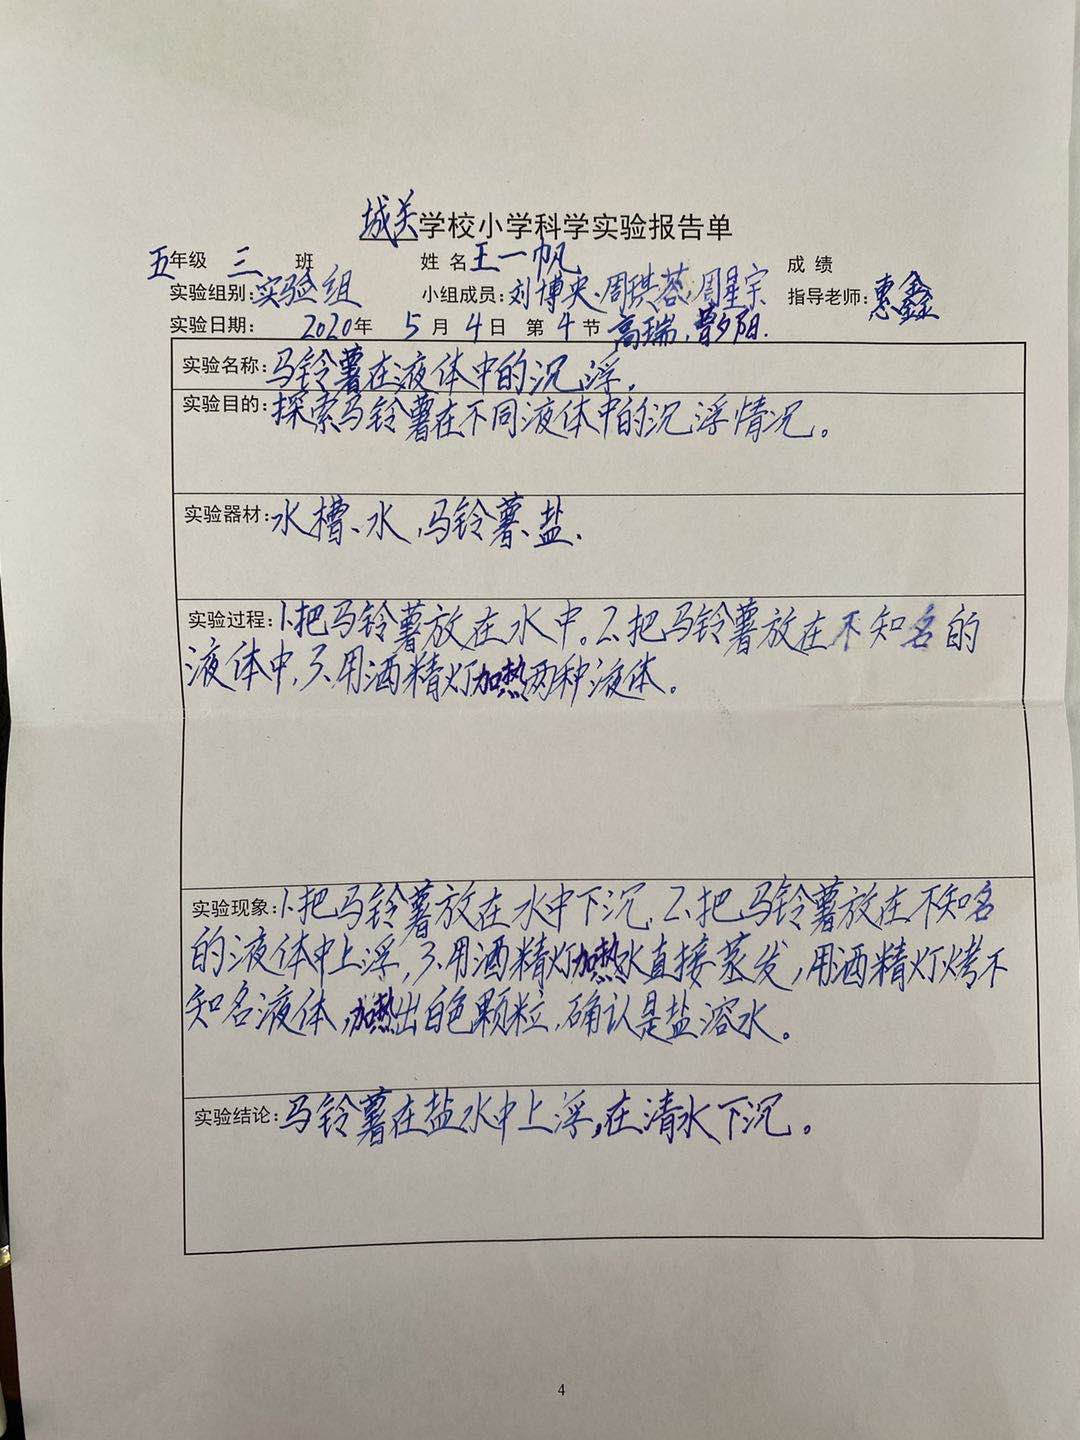 城关学校小学科学实验报告单
五年级 三 班 姓 名 王一帆 成 绩
实验组别:实验组 小组成员:刘博央、周琪蓉、周星宇 指导老师:惠鑫
实验日期: 2020年 5 月 4 日 第 4 节 高瑞,曾夕阳.
实验名称:马铃薯在液体中的沉浮.
实验目的:探索马铃薯在不同液体中的沉浮情况。
实验器材:水槽、水,马铃薯、盐、
实验过程:1、把马铃薯放在水中。2、把马铃薯放在不知名的
液体中,3、用酒精灯加热两种液体。
实验现象:1、把马铃薯放在水中下沉,2、把马铃薯放在不知名
的液体中上浮,3、用酒精灯加热水直接蒸发,用酒精灯烤不
知名液体,加热出白色颗粒,确认是盐溶水。
实验结论:马铃薯在盐水中上浮,在清水下沉。
4